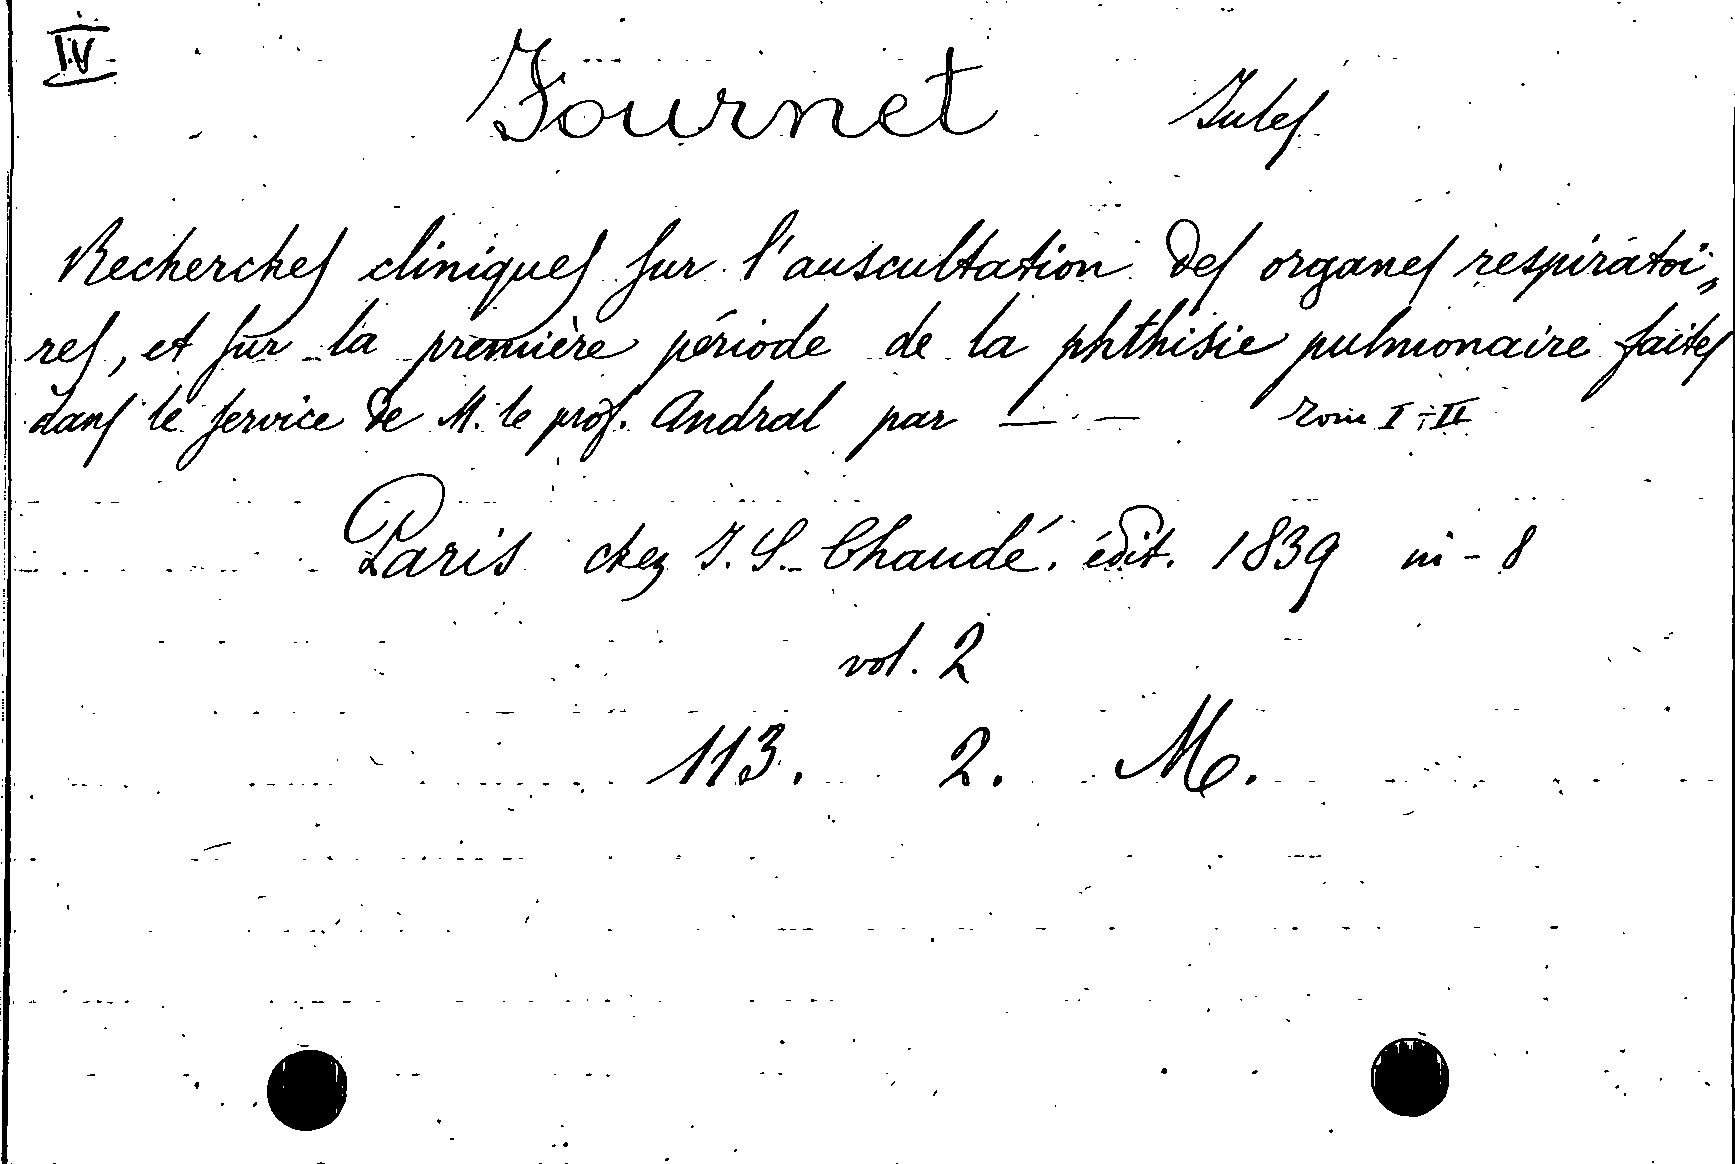 IV
Fournet Jules
Recherches cliniques sur l'auscultation des organes respiratoi„
res, et sur la première période de la phthisie pulmonaire faites
dans le service de M. le prof. Andral par — — Tom I-II
Paris chez J. S. Chaudé. édit. 1839 in-8
vol. 2
113. 2. M.